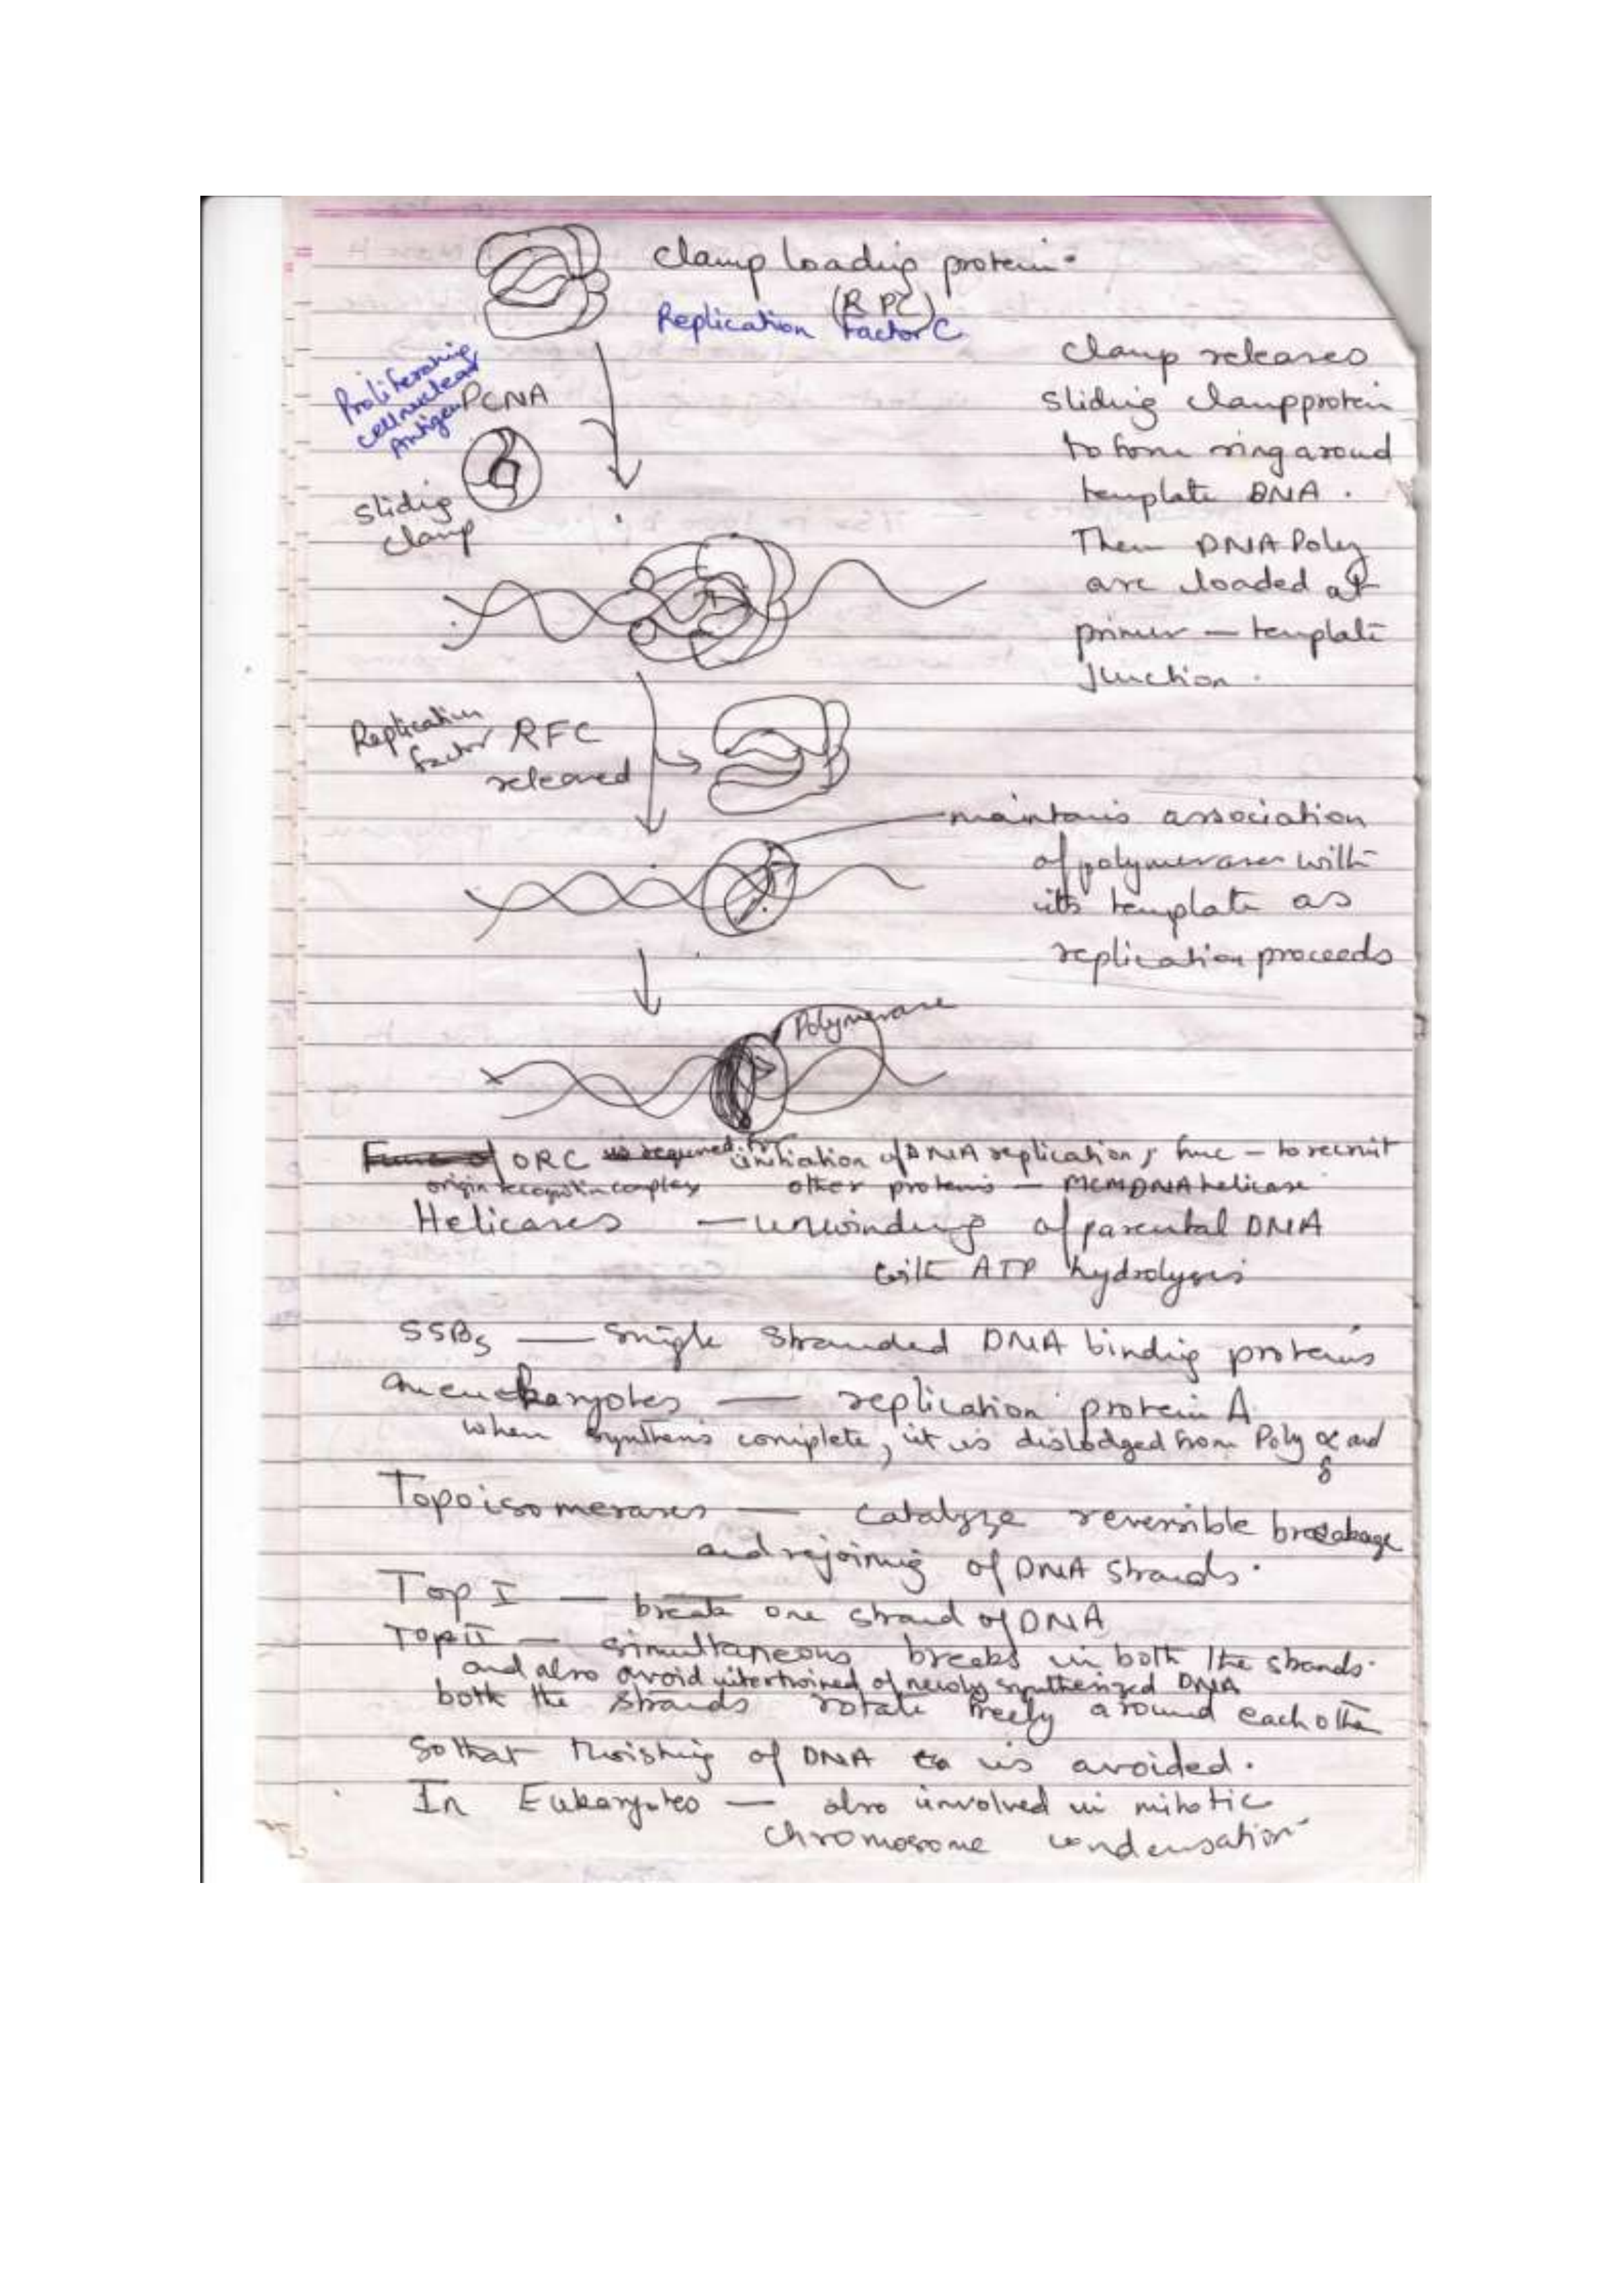 clamp loading protein.
(R PC)
Replication Factor C
Proliferating
cell nuclear
Antigen
PCNA
sliding
clamp
clamp releases
sliding clamp protein
to form ring around
template DNA.
Then DNA Poly
are loaded at
primer – template
junction.
Replication
factor RFC
released
maintains association
of polymerases with
its template as
replication proceeds
Polymerase
Func of ORC is required for initiation of DNA replication, func – to recruit
origin recognition complex other proteins – MCM DNA helicase
Helicases — unwinding of parental DNA
with ATP hydrolysis
SSBs — Single Stranded DNA binding proteins
eukaryotes — replication protein A
when synthesis complete, it is dislodged from Poly α and
δ
Topoisomerases — catalyze reversible breakage
and rejoining of DNA strands.
Top I — break one strand of DNA
Top II — simultaneous breaks in both the strands.
and also avoid intertwined of newly synthesized DNA
both the strands rotate freely around each other
so that twisting of DNA is avoided.
In Eukaryotes — also involved in mitotic
chromosome condensation